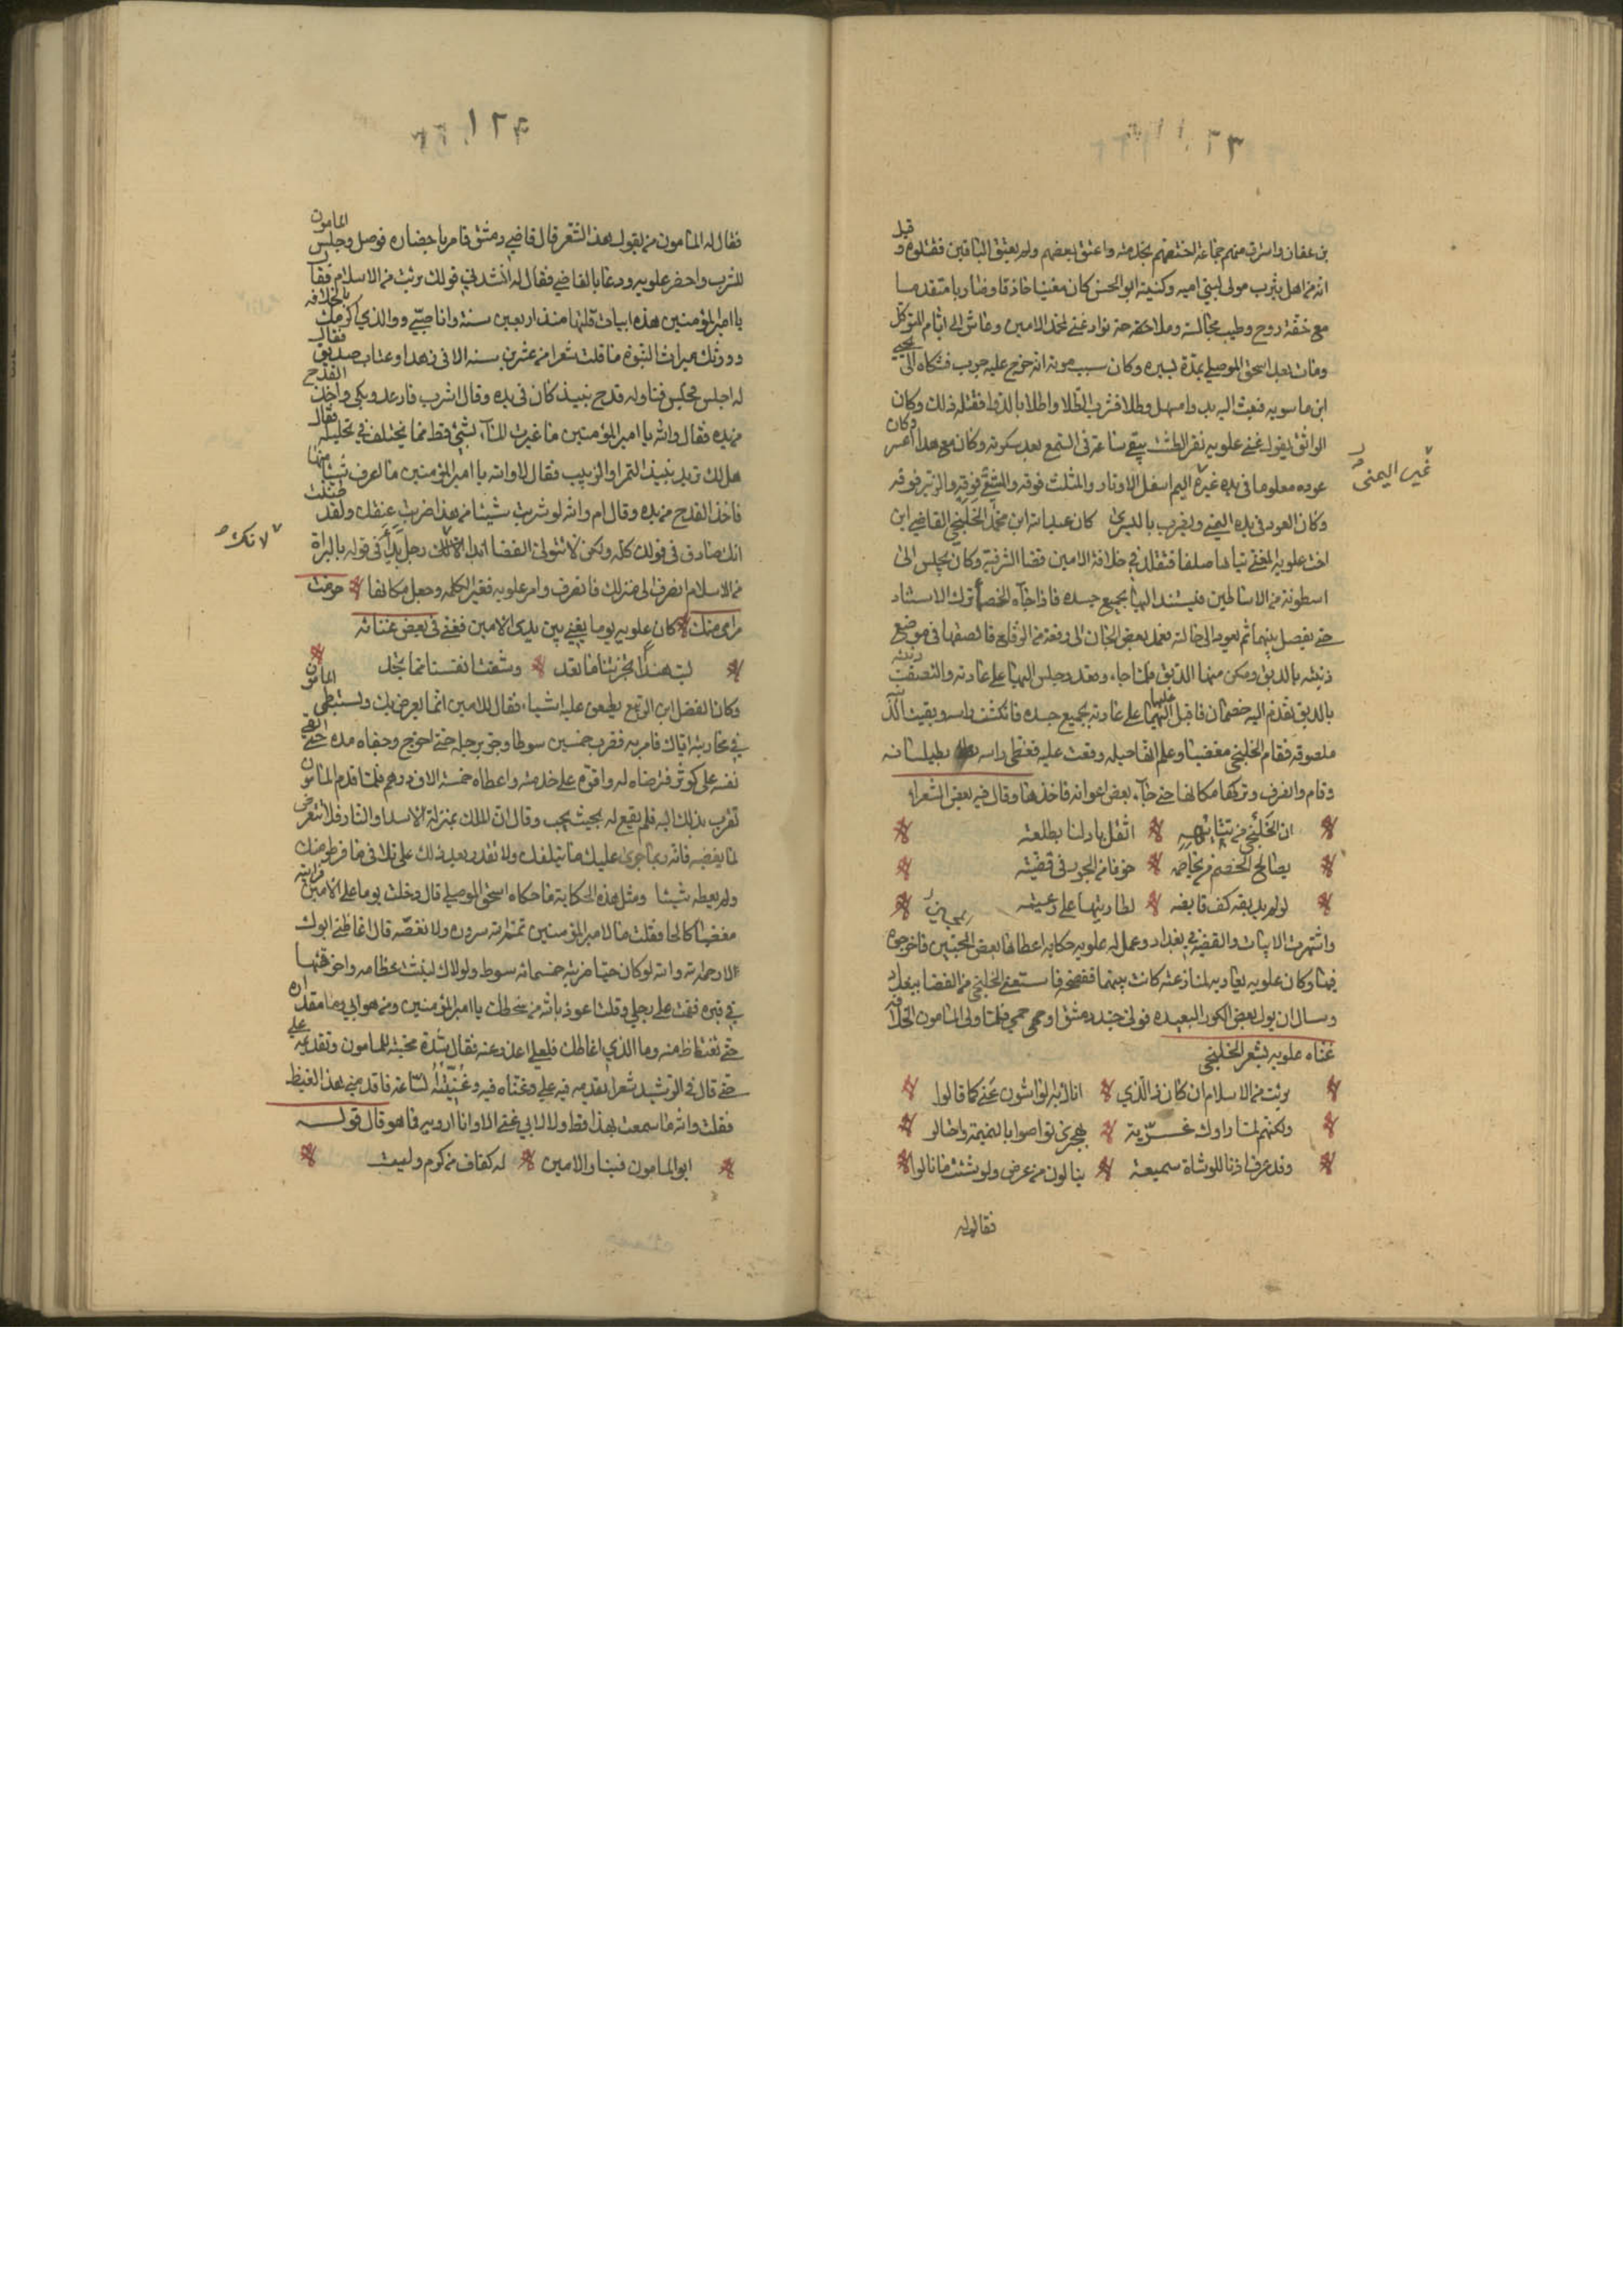 بن عفان واسترق منهم جماعة اختصهم بخدمته واعتق بعضهم ولم يعتق الباقين فقتلوه وقيل
انه من اهل يثرب مولى لبني اميه وكنيته ابو الحسن كان مغنيا حاذقا وضاربا متقدما
مع خفة روح وطيب مجالسة وملاحة نوادر غنى لمحمد الامين وعاش الى ايام المتوكل
ومات بعد اسحق الموصلي بمدة يسيره وكان سبب موته انه خرج عليه جرب فشكاه الى يحيى
ابن ماسويه فبعث اليه بدواء مسهل وطلا فشرب الطلا واطلا بالدوا فقتله ذلك وكان
الواثق يقول غنى علويه نقر الطشت يبقى ساعة في السمع بعد سكوته وكان مع هذا اعسر وكان
عوده معلوما في يده غيره البم اسفل الاوتار والمثلث فوقه والمثنى فوقه والزير فوقه
غير اليمنى
وكان العود في يده اليمنى ويضرب باليسرى كان عبد الله ابن محمد الخلنجي القاضي ابن
اخت علويه المغني تياها صلفا فتقلد في خلافة الامين قضا الشرقية وكان يجلس الى
اسطوانة من الاساطين فيستند اليها بجميع جسده فاذا جاءه الخصما ترك الاستناد
حتى يفصل بينهما ثم يعود الى حالته فعمد بعض المجان الى رقعة من الرقاع فالصقها في موضع
دنيته بالدبق ومكن منها الدبق فلما جاء وقعد وجلس اليها على عادته والتصقت دنيته
بالدبق تقدم اليه خصمان فاقبل عليهما على عادته بجميع جسده فانكشف راسه وبقيت الدنية
ملصوقه فقام الخلنجي مغضبا وعلم انها حيله وقعت عليه فغطى راسه بطيلسانه
وقام وانصرف وتركها مكانها حتى جاء بعض اعوانه فاخذها وقال فيه بعض الشعراء
ان الخلنجي من تتايهه اثقل باد لنا بطلعته
يصالح الخصم من يخاصمه خوفا من الجور في قضيته
لو لم يدبقه كف قابضه لطار تيها على رعيته
واشتهرت الابيات والقضية في بغداد وعمل له علويه حكاية اعطاها بعض المخنثين فاخرجوه
فيها وكان علويه يعاديه لمنازعة كانت بينهما ففضحه فاستعفى الخلنجي من القضا ببغداد
وسال ان يولى بعض الكور البعيده فولي جند دمشق او حمص فلما ولي المامون الخلافه
غناه علويه بشعر الخلنجي
برئت من الاسلام ان كان ذا الذي اتاك به الواشون عني كما قالوا
ولكنهم لما راوك غرية بهجري تواصوا بالنميمة واحتالوا
وقد صرت اذنا للوشاة سميعة ينالون من عرضي ولو شئت ما نالوا
فقال له
فقال له المامون من يقول هذا الشعر قال قاضي دمشق فامر باحضاره فوصل وجلس المامون
للشرب واحضر علويه ودعا بالقاضي فقال له انشدني قولك برئت من الاسلام فقال
يا امير المؤمنين هذه ابيات قلتها منذ اربعين سنة وانا صبي ووالذي اكرمك بالخلافه
وورثك ميراث النبوة ما قلت شعرا من عشرين سنه الا في زهد او عتاب صديق فقال
له اجلس فجلس فناوله قدح نبيذ كان في يده وقال اشرب فارعد وبكى واخذ القدح
من يده فقال والله يا امير المؤمنين ما غيرت الماء بشئ قط مما يختلف في تحليله فقال
هل لك تريد نبيذ التمر او الزبيب فقال لا والله يا امير المؤمنين ما اعرف شيئا منها
فاخذ القدح من يده وقال ام والله لو شربت شيئا من هذا ضربت عنقك ولقد ظننت
انك صادق في قولك كله ولكن لا تتولى القضا ابدا رجل بدأ في قوله بالبراة
لانك
من الاسلام انصرف الى منزلك فانصرف وامر علويه فغير الكلمه وجعل مكانها حرمت
مرامي منك كان علويه يوما يغني بين يدي الامين فغنى في بعض غنائه
ليت هندا انجزتنا ما تعد وشفت انفسنا مما تجد
وكان الفضل ابن الربيع يطعن عليه اشياء فقال للامين انما يعرض بك ويستبطي المامون
في محاربته اياك فامر به فضرب خمسين سوطا وجر برجله حتى اخرج وجفاه مدة حتى القى
نفسه على كوثر فترضاه له واقره على خدمته واعطاه خمسة الاف درهم فلما قدم المامون
تقرب بذلك اليه فلم يقع له بحيث يحب وقال ان الملك بمنزلة الاسد او النار فلا تتعرض
لما يغضبه فانه ربما جرى عليك ما يتلفك ولا تقدر بعد ذلك على تلافي ما فرط منك
ولم يعطه شيئا ومثل هذه الحكاية ما حكاه اسحق الموصلي قال دخلت يوما على الامين فرايته
مغضبا كالحا فقلت ما لامير المؤمنين تمم الله سروره ولا نغصه قال اغاظني ابوك
لا رحمه الله والله لو كان حيا ضربته خمسمائة سوط ولولاك لنبشت عظامه واحرقتها
في قبره فقمت على رجلي وقلت اعوذ بالله من سخطك يا امير المؤمنين ومن هو ابي وما مقداره
حتى تغتاظ منه وما الذي اغاظك فلعلي اعذر عنه فقال شدة محبته للمامون وتقديمه علي
حتى قال في الرشيد شعرا يقدمه فيه علي وغناه فيه وغنيته الساعة فاقدمني هذا الغيظ
فقلت والله ما سمعت بهذا قط ولا لابي غنى الا وانا ارويه فما هو قال قوله
ابو المامون فينا والامين له كنفان من كرم ولين